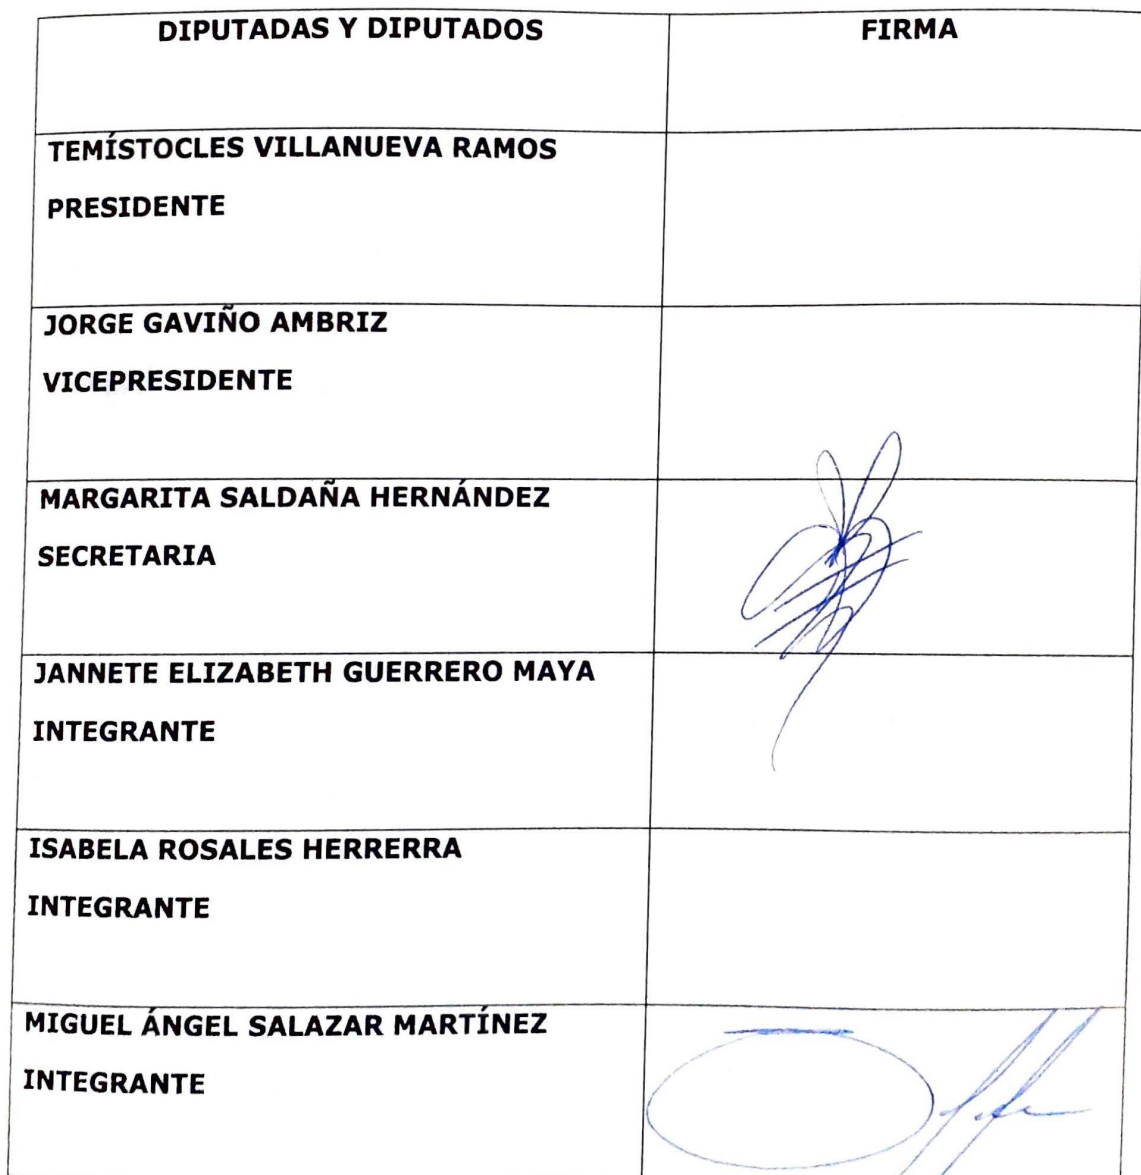 DIPUTADAS Y DIPUTADOS
FIRMA
TEMÍSTOCLES VILLANUEVA RAMOS
PRESIDENTE
JORGE GAVIÑO AMBRIZ
VICEPRESIDENTE
MARGARITA SALDAÑA HERNÁNDEZ
SECRETARIA
JANNETE ELIZABETH GUERRERO MAYA
INTEGRANTE
ISABELA ROSALES HERRERRA
INTEGRANTE
MIGUEL ÁNGEL SALAZAR MARTÍNEZ
INTEGRANTE